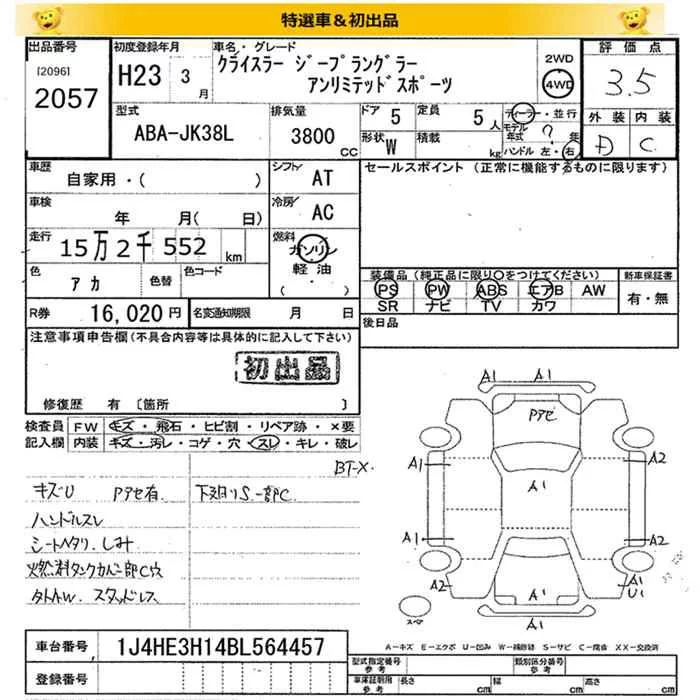 特選車&初出品
出品番号 初度登録年月 車名・グレード 評価点
[2096] 2057
H23 3月 クライスラー ジープラングラー
アンリミテッドスポーツ
2WD 4WD
3.5
型式 排気量 ドア 5 定員 5人 ディーラー・並行 外装 内装
ABA-JK38L 3800 CC 形状 W 積載 kg モデル年式 ? 年 D C
ハンドル 左・右
車歴 シフト セールスポイント (正常に機能するものに限ります)
自家用・( ) AT
車検 年 月( 日) 冷房 AC
走行 15万2千552 km 燃料 ガソリン
軽油
( ・ )
色 アカ 色替 色コード
装備品(純正品に限り○をつけてください) 新車保証書
PS PW ABS エアB AW 有・無
SR ナビ TV カワ
R券 16,020円 名変通知期限 月 日 後日品
注意事項申告欄(不具合内容等は具体的に記入して下さい)
初出品
修復歴 有 〔箇所 〕
検査員 FW キズ・飛石・ヒビ割・リペア跡・×要
記入欄 内装 キズ・汚レ・コゲ・穴・スレ・キレ・破レ
BT-X.
キズU Pアセ有. 下廻りS.一部C
ハンドルスレ
シートヘタリ.しみ
燃料タンクカバー部C穴
タトAW. スタッドレス
A1 A1
Pアセ
A1 A1 A2
A1 A1
A2 A1 A1 U1
スペア A1
A=キズ E=エクボ U=凹み W=補修跡 S=サビ C=腐食 XX=交換済
車台番号 1J4HE3H14BL564457
登録番号
型式指定番号 参考 類別区分番号 参考
車庫証明用 参考 長さ cm 幅 cm 高さ cm